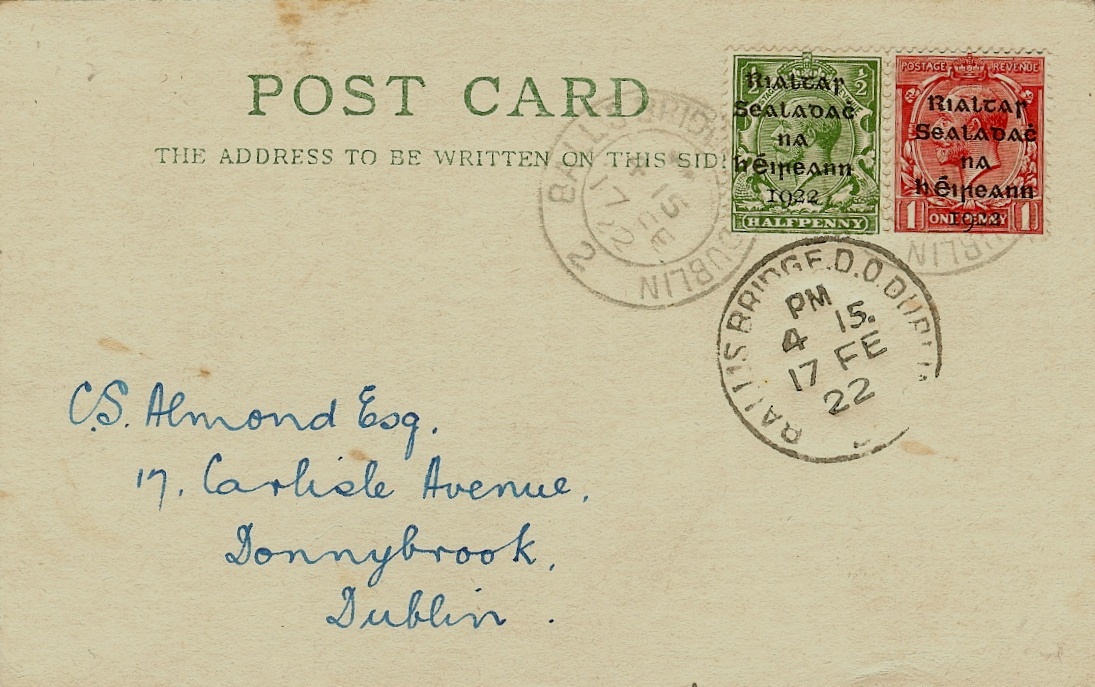 POST CARD
THE ADDRESS TO BE WRITTEN ON THIS SIDE
½ ½
Rialtar
Sealadaċ
na
hÉireann
1922
HALFPENNY
POSTAGE REVENUE
Rialtar
Sealadaċ
na
hÉireann
1922
1 ONE PENNY 1
BALLSBRIDGE DUBLIN 2
15
17 FE
22
BALLSBRIDGE.D.O.DUBLIN
PM
4 15.
17 FE
22
C.S. Almond Esq.
17, Carlisle Avenue,
Donnybrook,
Dublin.